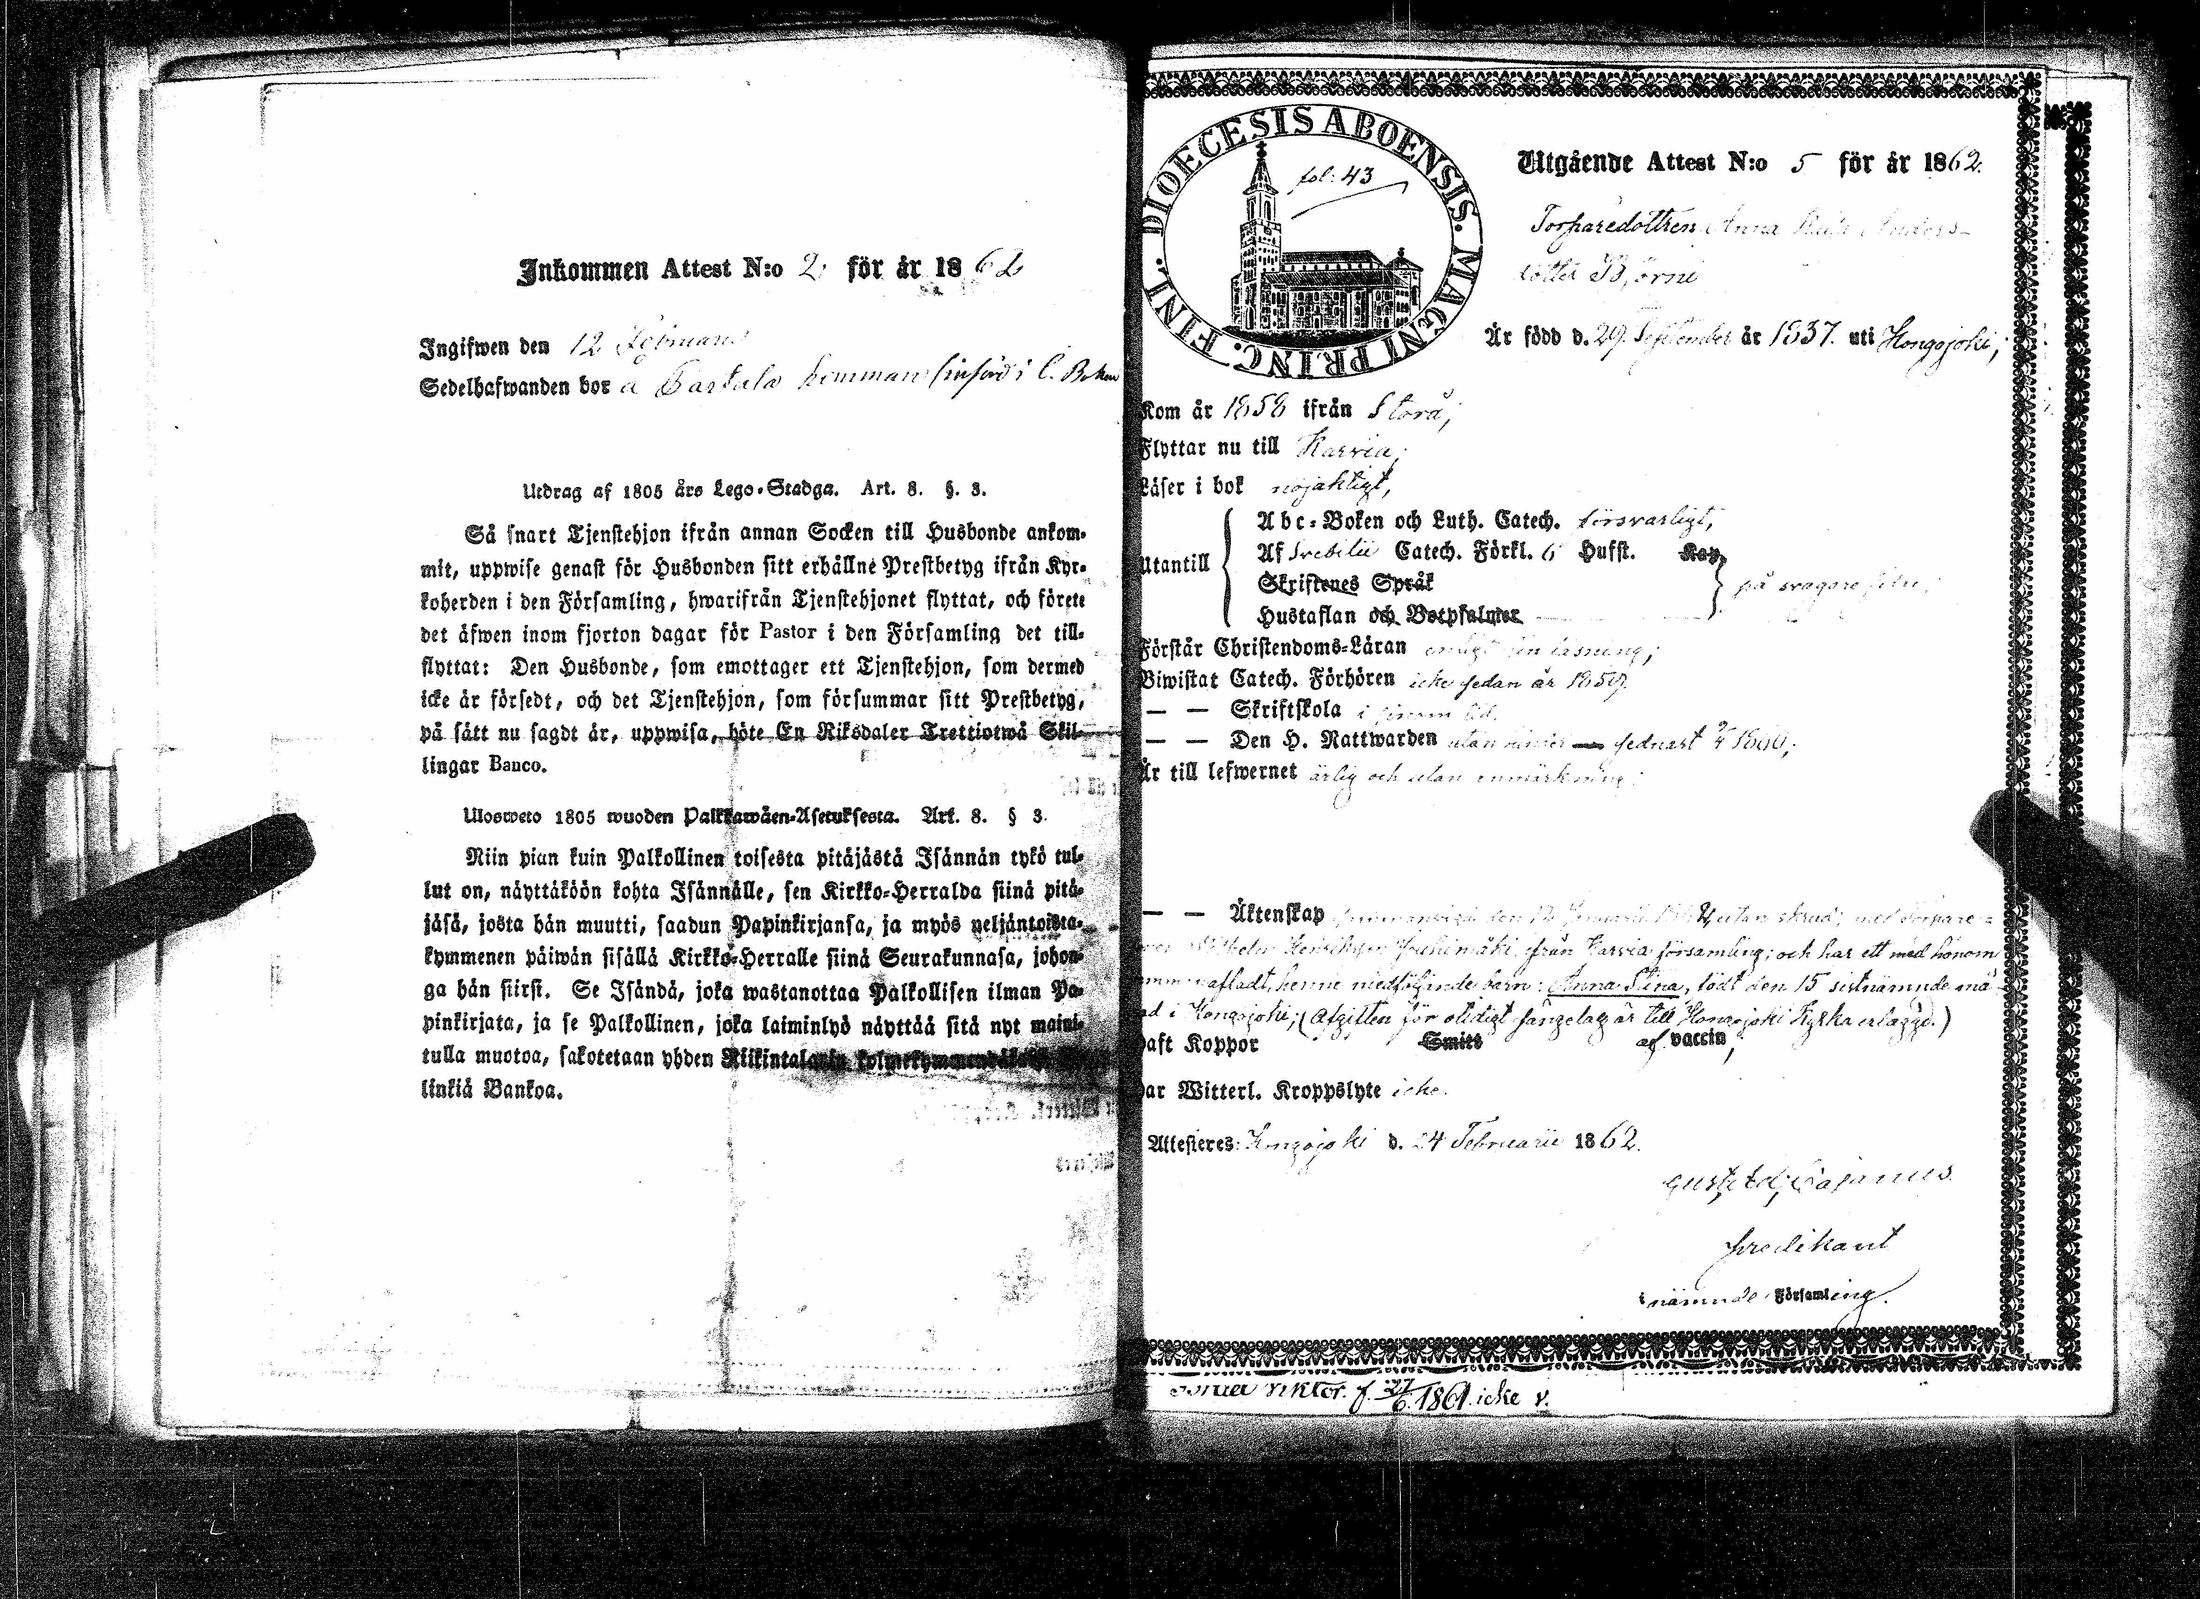 Inkommen Attest N:o 2, för år 1862
Ingifwen den 12 Februarii
Sedelhafwanden bor å hemman
Utdrag af 1805 års Lego-Stadga. Art. 8. §. 3.
Så snart Tjenstehjon ifrån annan Socken till Husbonde ankom-
mit, uppwise genast för Husbonden sitt erhållne Prestbetyg ifrån Kyr-
koherden i den Församling, hwarifrån Tjenstehjonet flyttat, och förete
det äfwen inom fjorton dagar för Pastor i den Församling det till-
flyttat: Den Husbonde, som emottager ett Tjenstehjon, som dermed
icke är försedt, och det Tjenstehjon, som försummar sitt Prestbetyg,
på sätt nu sagdt är, uppwisa, böte En Riksdaler Trettiotwå Skil-
lingar Banco.
Ulosweto 1805 wuoden Palkkawäen-Asetuksesta. Art. 8. § 3.
Niin pian kuin Palkollinen toisesta pitäjästä Isännän tykö tul-
lut on, näyttäköön kohta Isännälle, sen Kirkko-Herralda siinä pitä-
jäsä, josta hän muutti, saadun Papinkirjansa, ja myös neljäntoista-
kymmenen päiwän sisällä Kirkko-Herralle siinä Seurakunnasa, johon-
ga hän siirsi. Se Isändä, joka wastanottaa Palkollisen ilman Pa-
pinkirjata, ja se Palkollinen, joka laiminlyö näyttää sitä nyt maini-
tulla muotoa, sakotetaan yhden Riikintalarin
linkiä Bankoa.
DIOECESIS ABOENSIS. MAGNI PRINC. FINL.
fol: 43
Utgående Attest N:o 5 för år 1862.
Torparedottren Anna Anders-
dotter Björni
Är född d. 29 September år 1837. uti Hongojoki,
Kom år 1858 ifrån Storå,
Flyttar nu till Karvia,
Läser i bok nöjaktigt,
Utantill
Abc-Boken och Luth. Catech. försvarligt,
Af Svebilii Catech. Förkl. 6 Hufst. Kap.
Skriftenes Språk
på svagare sidan,
Hustaflan och Botpsalmer
Förstår Christendoms-Läran enligt sin läsning;
Biwistat Catech. Förhören icke sedan år 1859.
— — Skriftskola i sinom tid.
— — Den H. Nattwarden utan sednast 1860;
Är till lefwernet ärlig och utan anmärkning;
— — Äktenskap den 12 Januarii utan skrud; med Torpare-
Henriksson Jouhimäki ifrån Karvia församling; och har ett med honom
afladt, henne medföljande barn: Anna Stina, född den 15 sistnämnde må-
ad i Hongojoki; (Afgiften för otidigt sängelag är till Hongojoki Kyrka erlagd.)
haft Koppor Smitt af vaccin,
har Witterl. Kroppslyte icke.
Attesteres: Hongojoki d. 24 Februarii 1862.
Gust. Ad. Cajanus.
Predikant
i nämnde Församling.
Viktor. f. 27/6 1861 icke v.